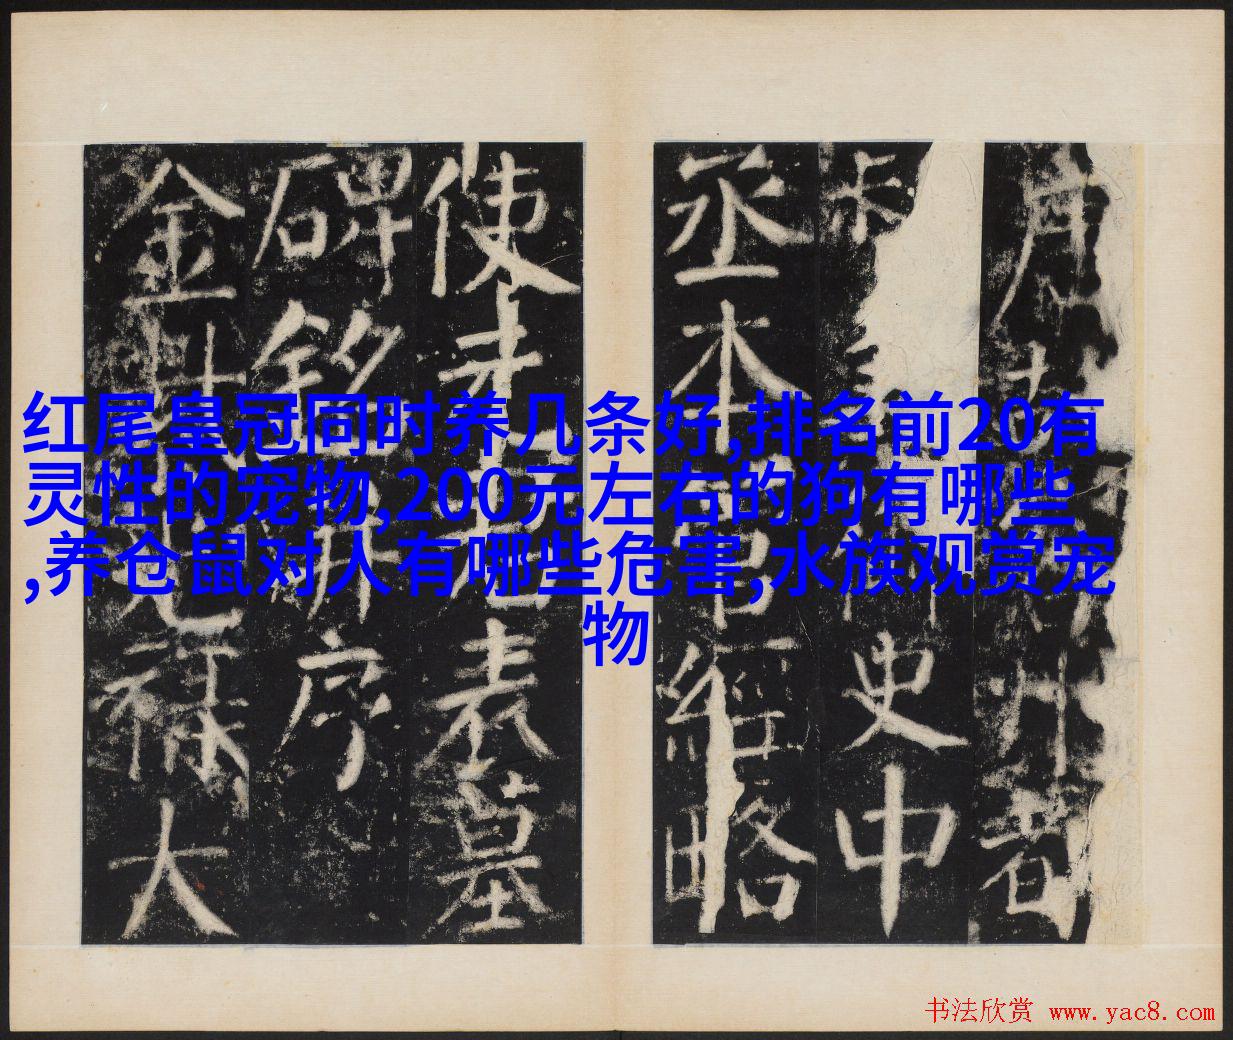 红尾皇冠同时养几条好,排名前20有
灵性的宠物,200元左右的狗有哪些
,养仓鼠对人有哪些危害,水族观赏宠
物
唐故
州者
史中
丞本
經略
使
表墓
碑銘
序
金
祿大
书法欣赏 www.yac8.com